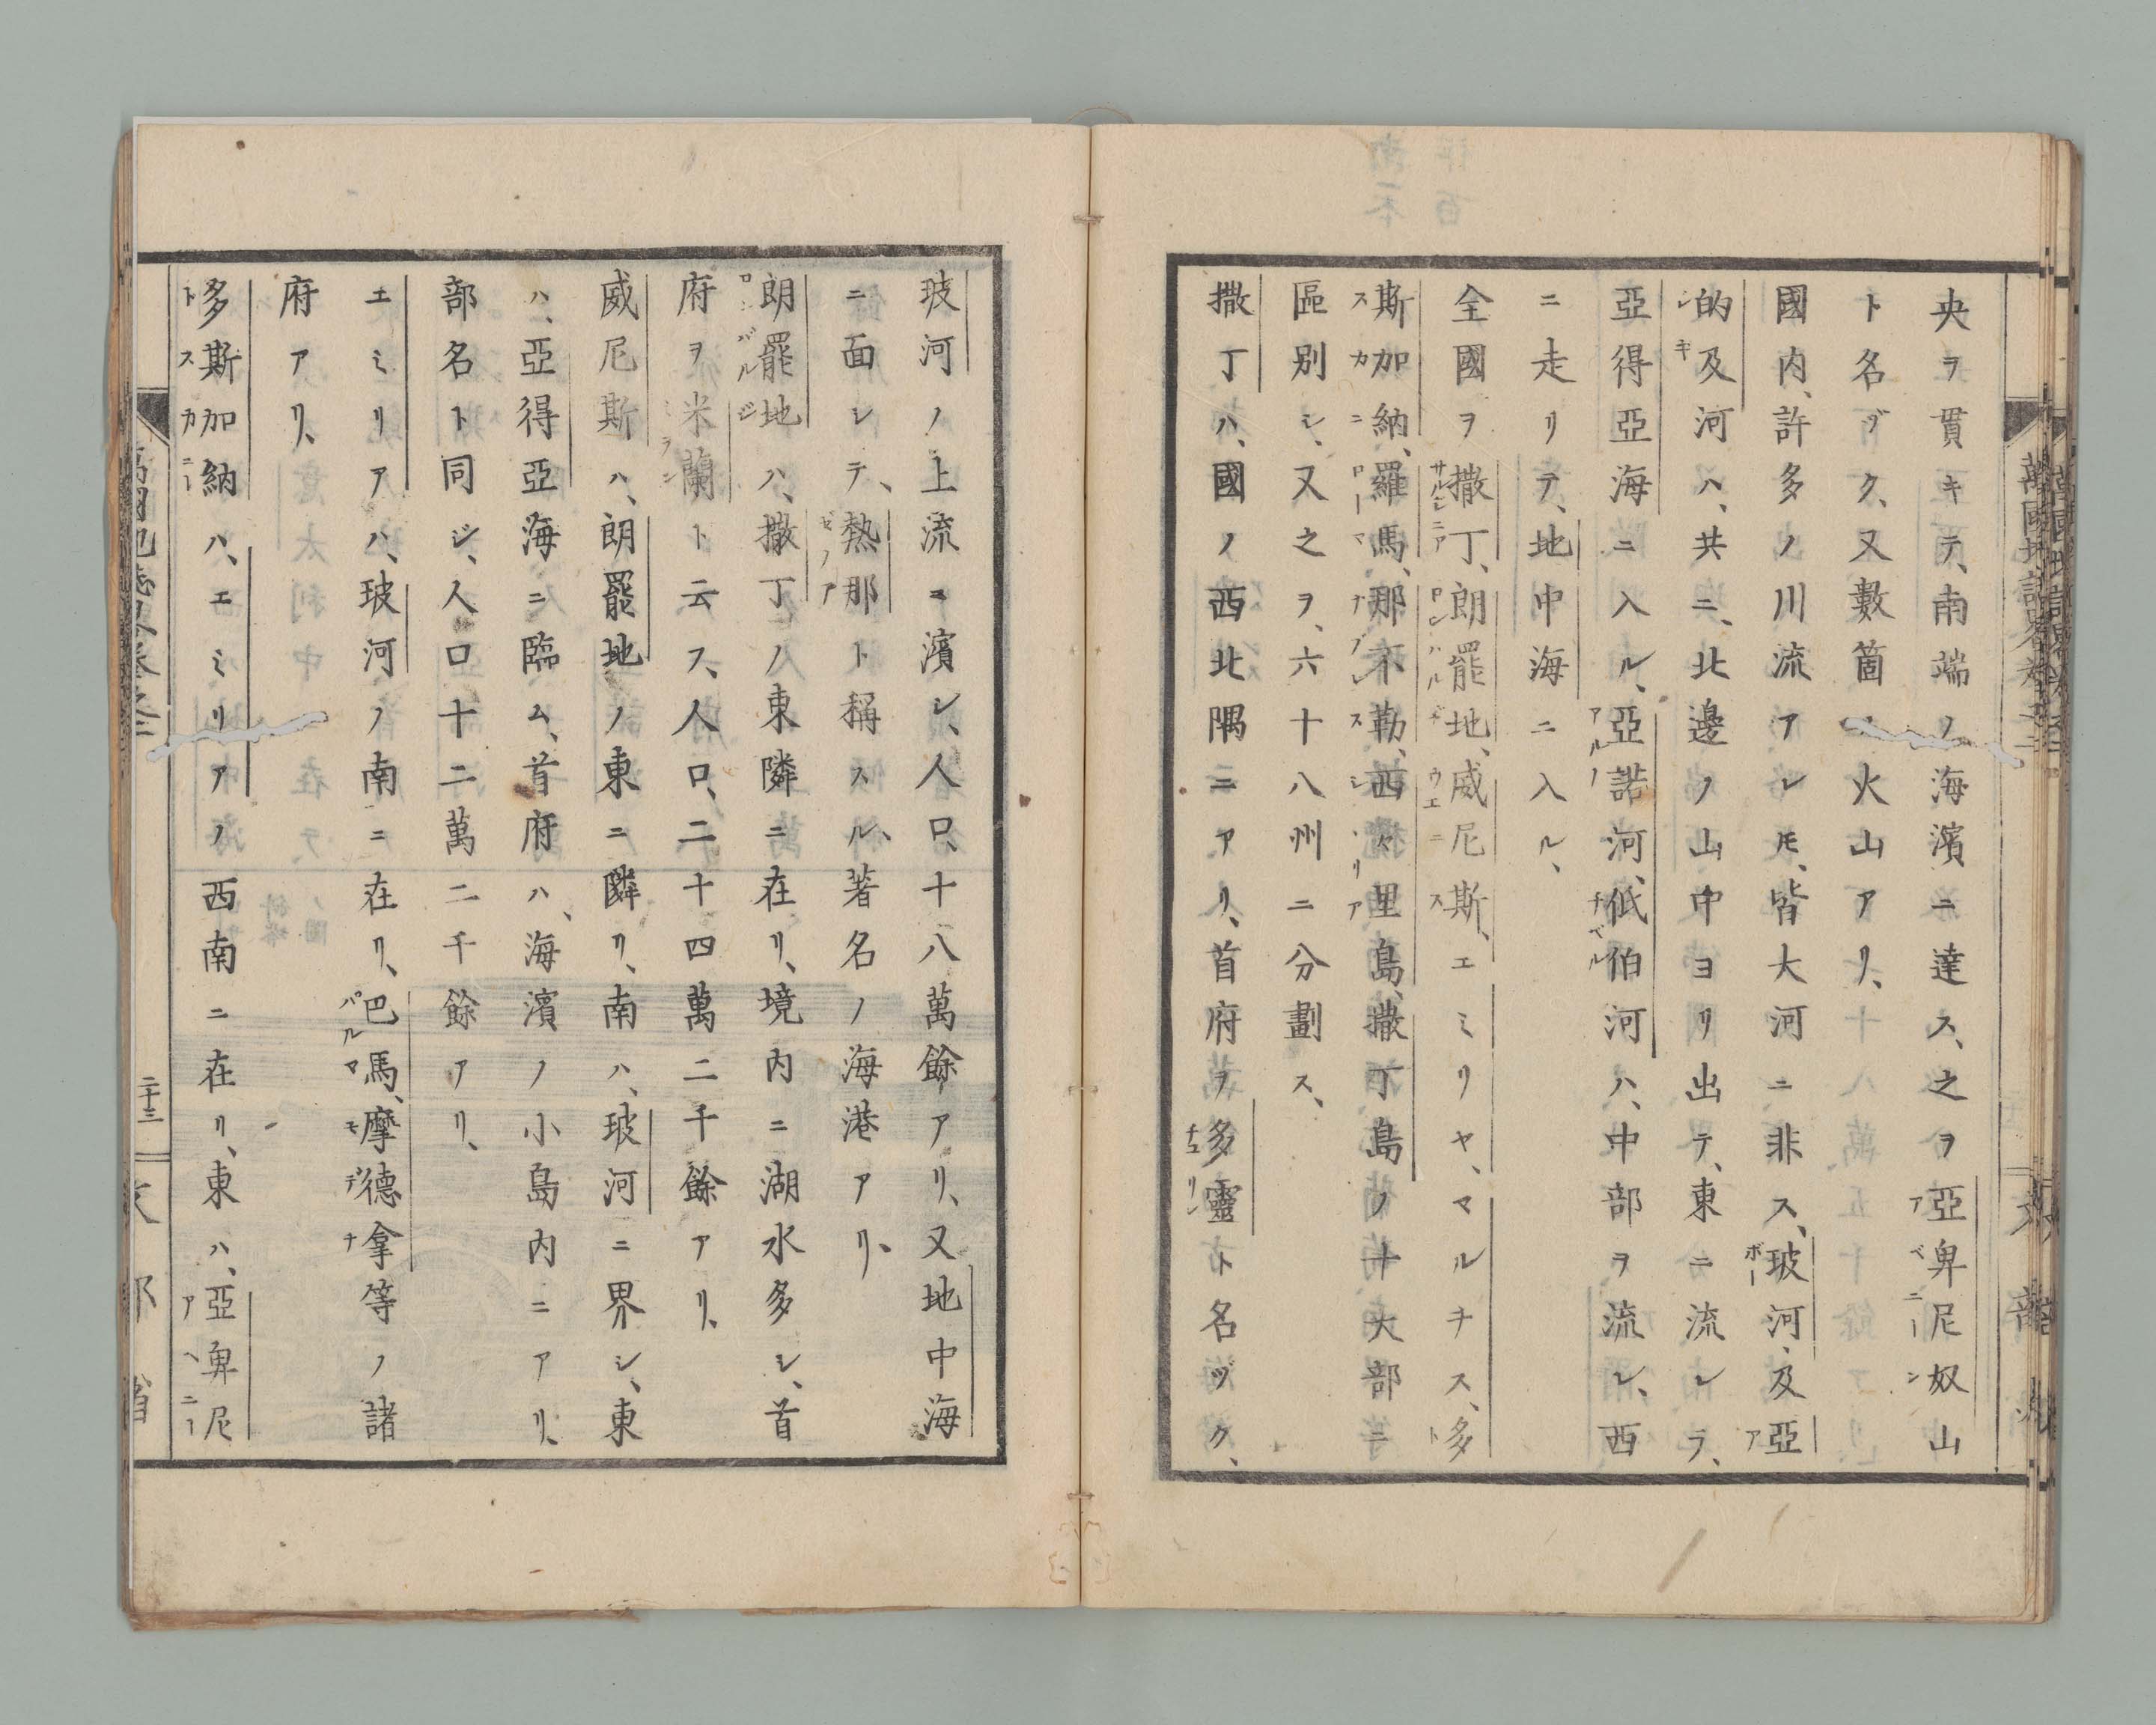 央ヲ貫キテ、南端ノ海濱ニ達ス、之ヲ亞卑尼奴山
ト名ヅク、又數箇ノ火山アリ、
國内、許多ノ川流アレ㇓モ、皆大河ニ非ス、玻河、及亞
的及河ハ、共ニ、北邊ノ山中ヨリ出テ、東ニ流レテ、
亞得亞海ニ入ル、亞諾河、低伯河ハ、中部ヲ流レ、西
ニ走リテ、地中海ニ入ル、
全國ヲ撒丁、朗罷地、威尼斯、エミリヤ、マルチス、多
斯加納、羅馬、那不勒、西々里島、撒丁島ノ十大部ニ
區别シ、又之ヲ、六十八州ニ分劃ス、
撒丁ハ、國ノ西北隅ニアリ、首府ヲ多靈ト名ヅク、
玻河ノ上流ニ濱シ、人口、十八萬餘アリ、又地中海
ニ面シテ、熱那ト稱スル、著名ノ海港アリ、
朗罷地ハ、撒丁ノ東隣ニ在リ、境内ニ湖水多シ、首
府ヲ米蘭ト云フ、人口、二十四萬二千餘アリ、
威尼斯ハ、朗罷地ノ東ニ隣リ、南ハ、玻河ニ界シ、東
ハ、亞得亞海ニ臨ム、首府ハ、海濱ノ小島内ニアリ、
部名ト同ジ、人口十二萬二千餘アリ、
エミリアハ、玻河ノ南ニ在リ、巴馬、摩德拿等ノ諸
府アリ、
多斯加納ハ、エミリアノ西南ニ在リ、東ハ、亞卑尼
二十三